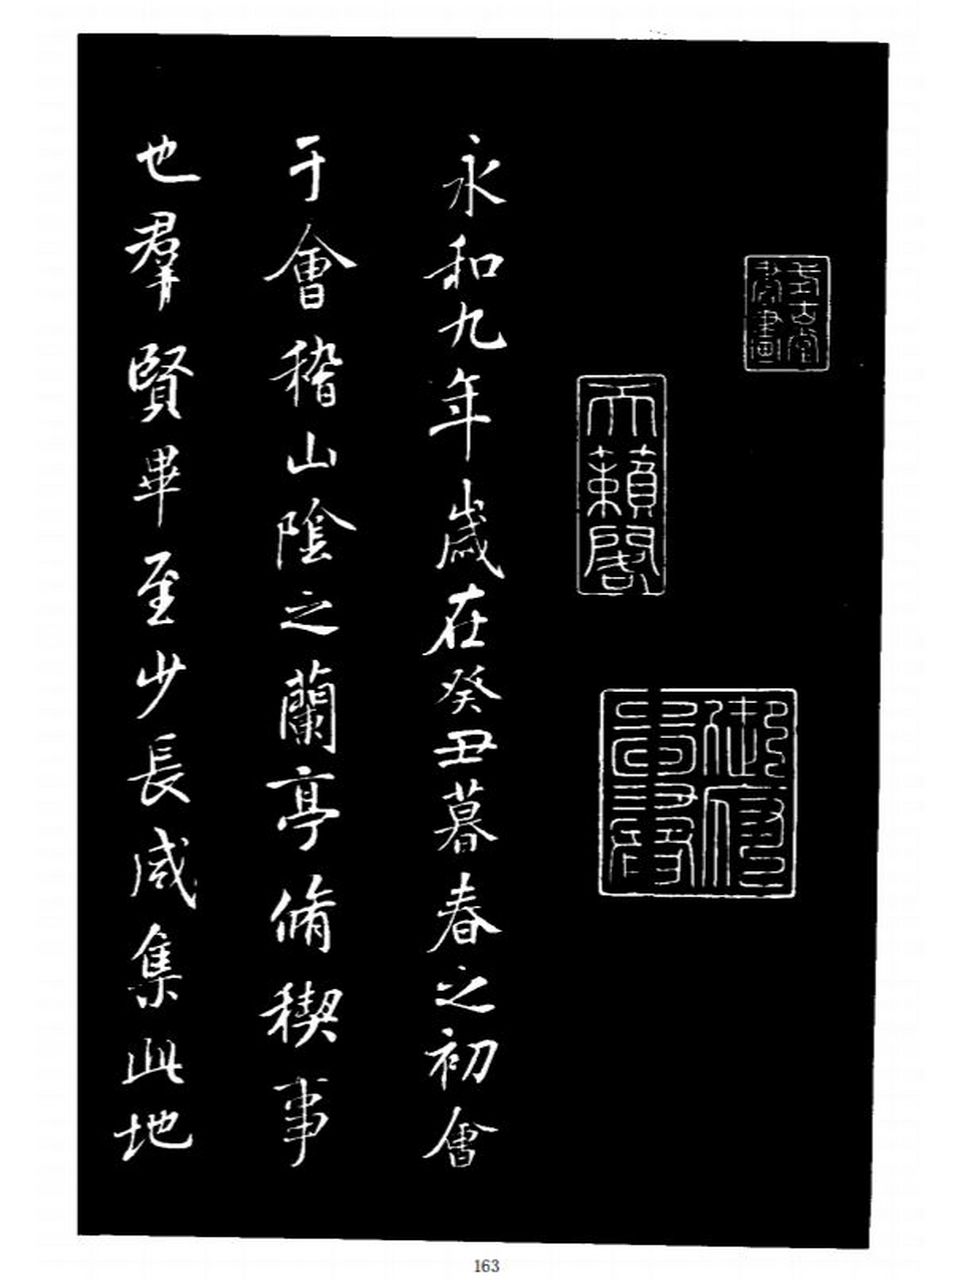 式古堂
書畫
天籟閣
永和九年歲在癸丑暮春之初會
于會稽山陰之蘭亭脩稧事
也羣賢畢至少長咸集此地
163